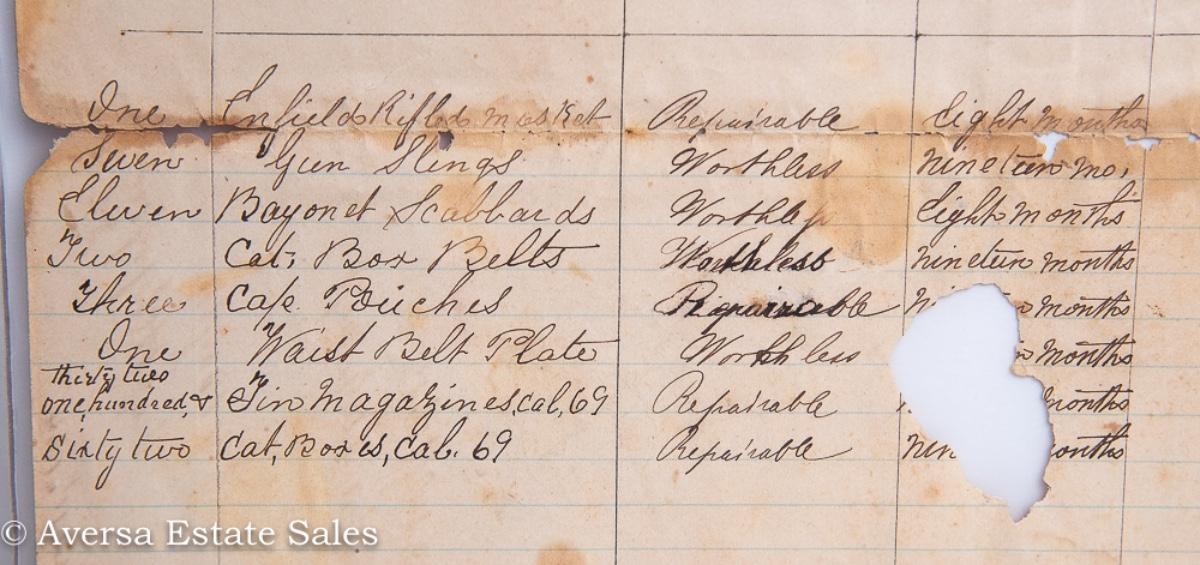 One Enfield Rifled Musket Repairable Eight months
Seven Gun Slings Worthless nineteen mo.
Eleven Bayonet Scabbards Worthless Eight months
Two Cat. Box Belts Worthless nineteen months
Three Cap Pouches Repairable months
One Waist Belt Plate Worthless months
thirty two
one hundred, & Tin Magazines, cal, 69 Repairable months
Sixty two Cat, Boxes, Cal. 69 Repairable months
© Aversa Estate Sales